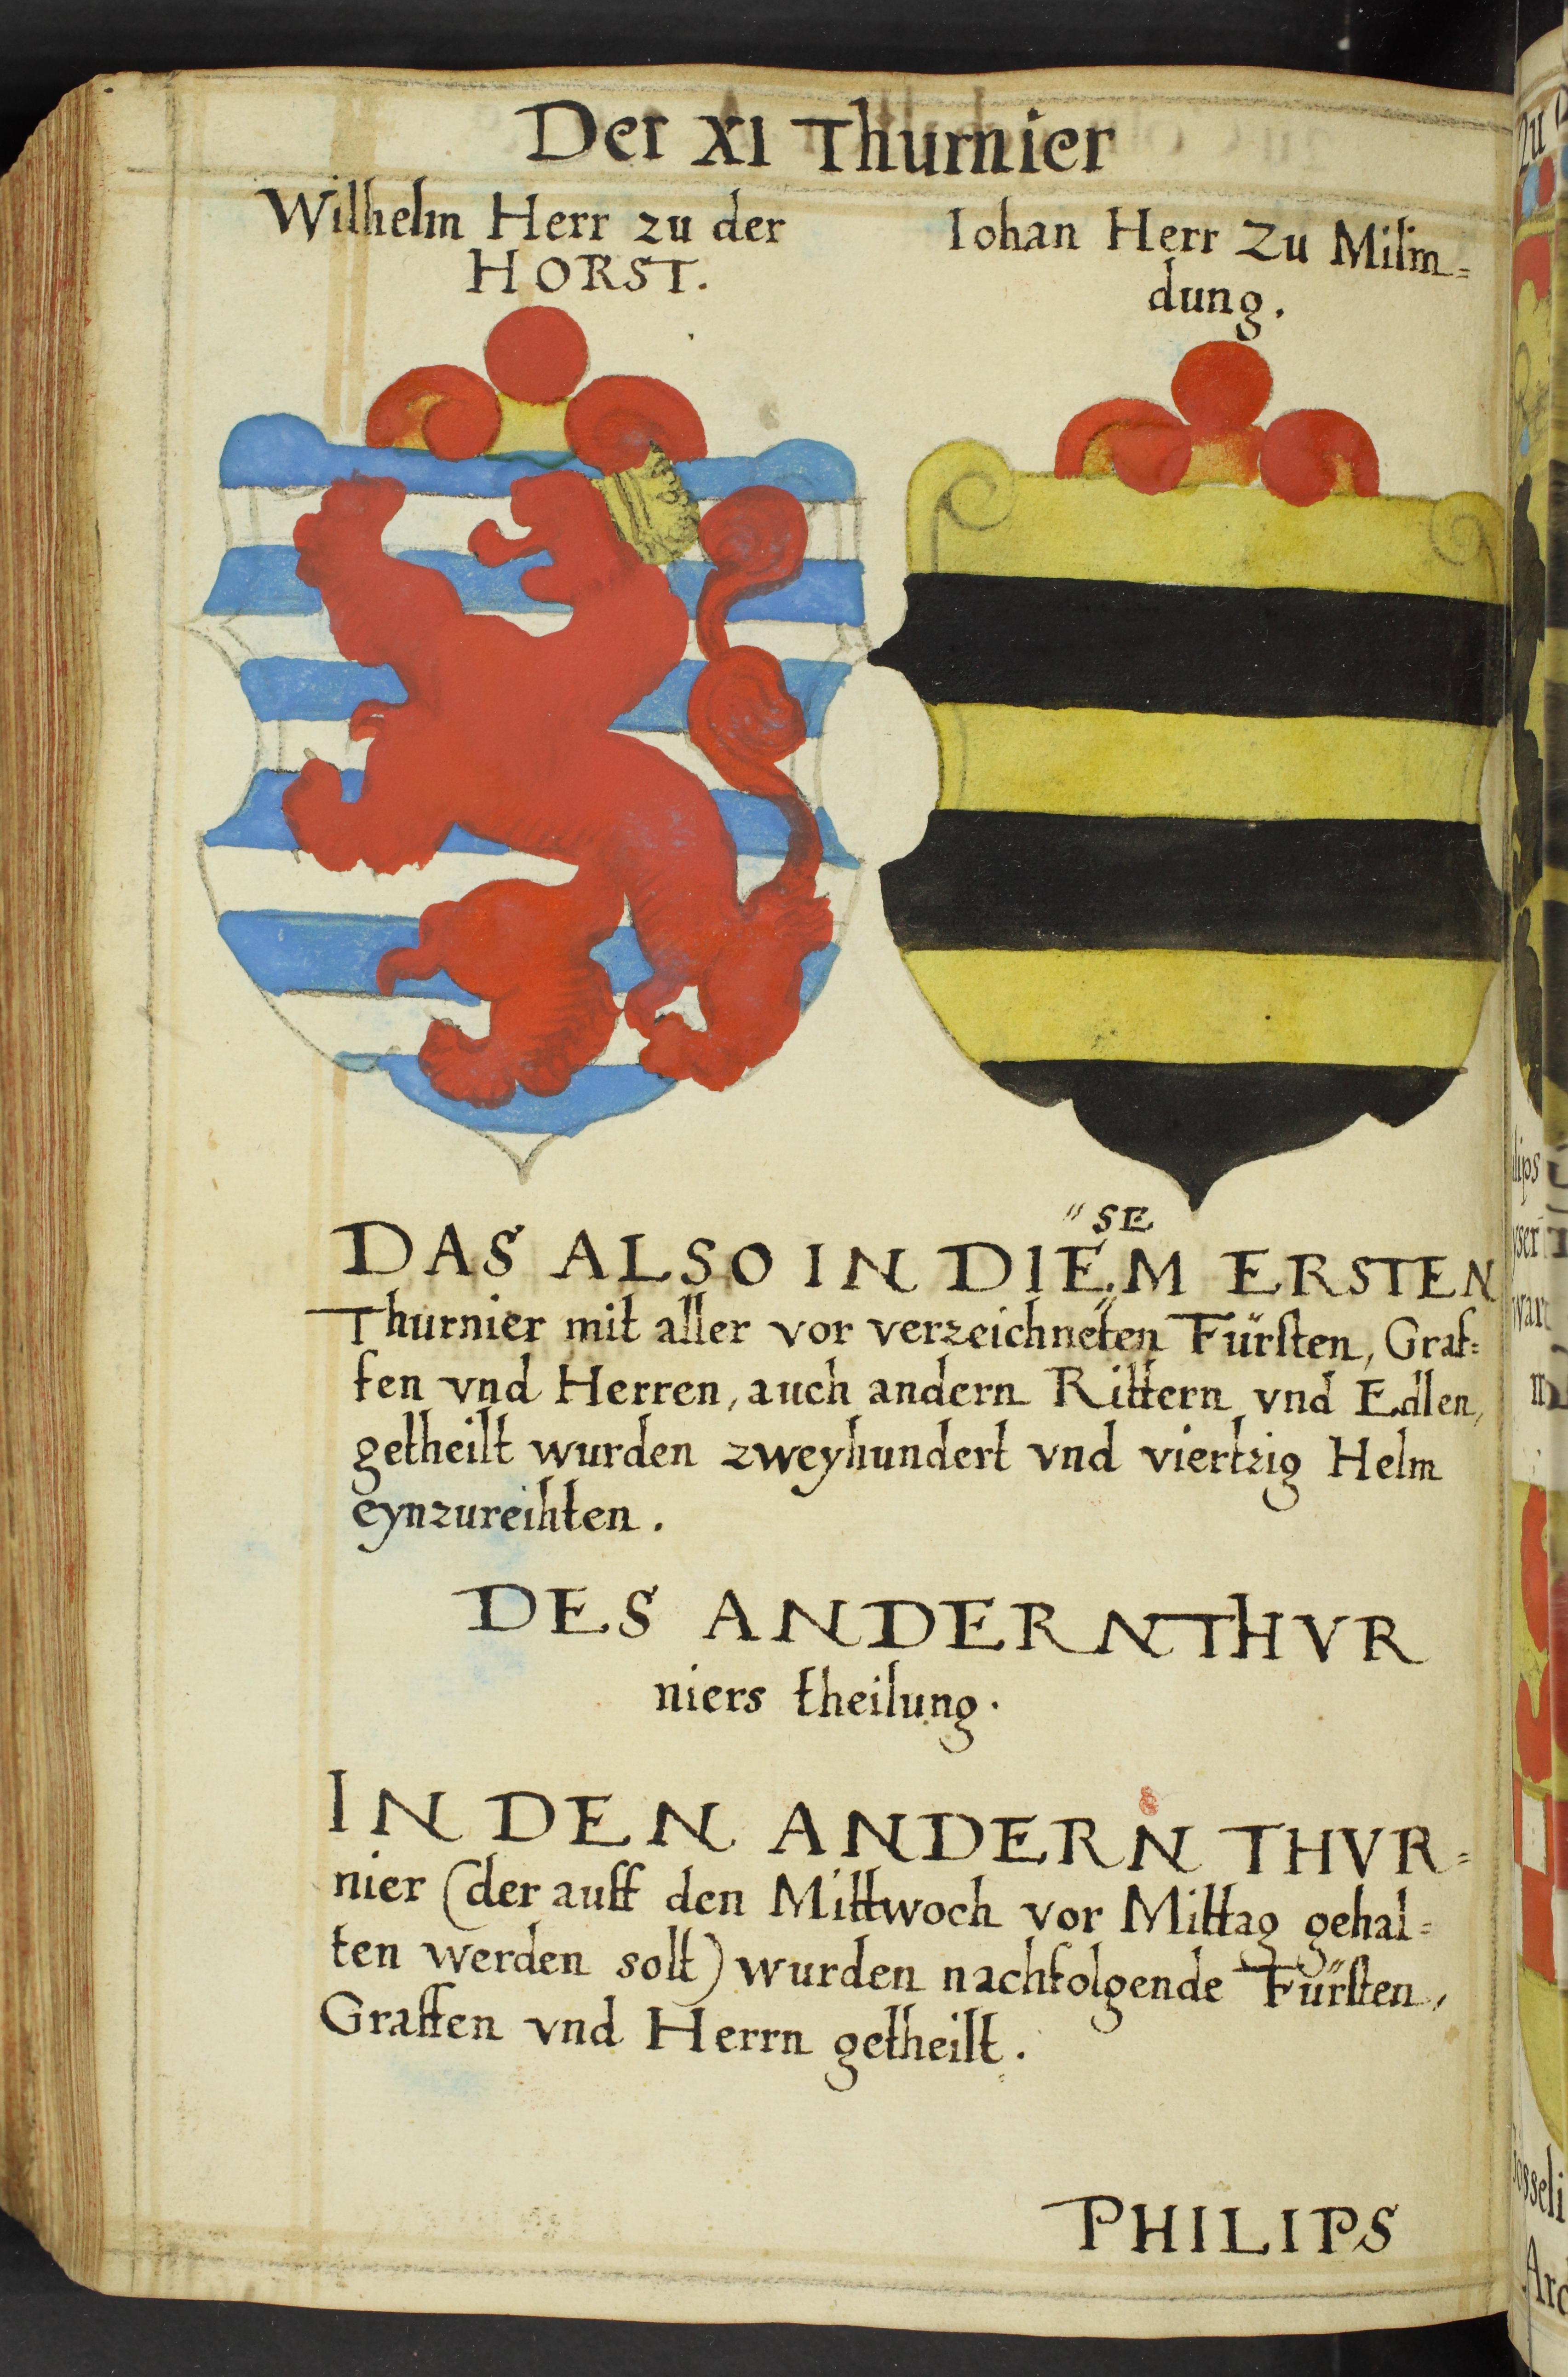 Der XI Thurnier
Wilhelm Herr zu der
HORST.
Iohan Herr Zu Milm=
dung.
"SE
DAS ALSO IN DIEM ERSTEN
Thurnier mit aller vor verzeichneten Fürsten, Graf=
fen vnd Herren, auch andern Rittern vnd Edlen,
getheilt wurden zweyhundert vnd viertzig Helm
eynzureihten.
DES ANDERN THVR
niers theilung.
IN DEN ANDERN THVR=
nier (der auff den Mittwoch vor Mittag gehal=
ten werden solt) wurden nachfolgende Fürsten,
Graffen vnd Herrn getheilt.
PHILIPS